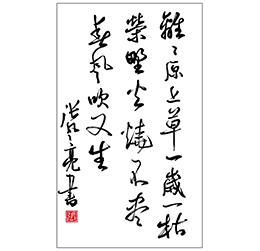 離〻原上草一歲一枯
榮野火燒不盡
春風吹又生
亮書